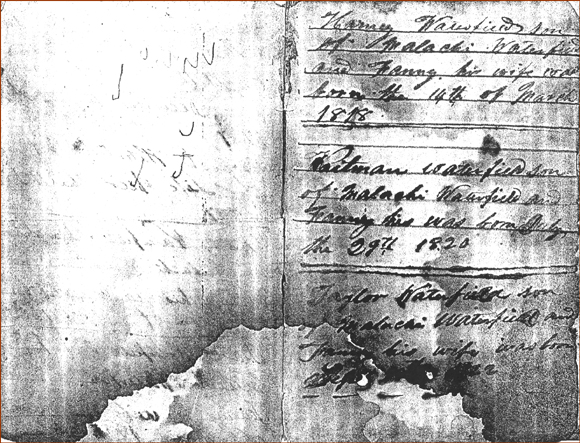 Harney Waterfield son
of Malachi Waterfield
and Fanny his wife was
born the 14th of March
1818
Eastman Waterfield son
of Malachi Waterfield and
Fanny his was born July
the 29th 1820
Taylor Waterfield son
of Malachi Waterfield and
Fanny his wife was born